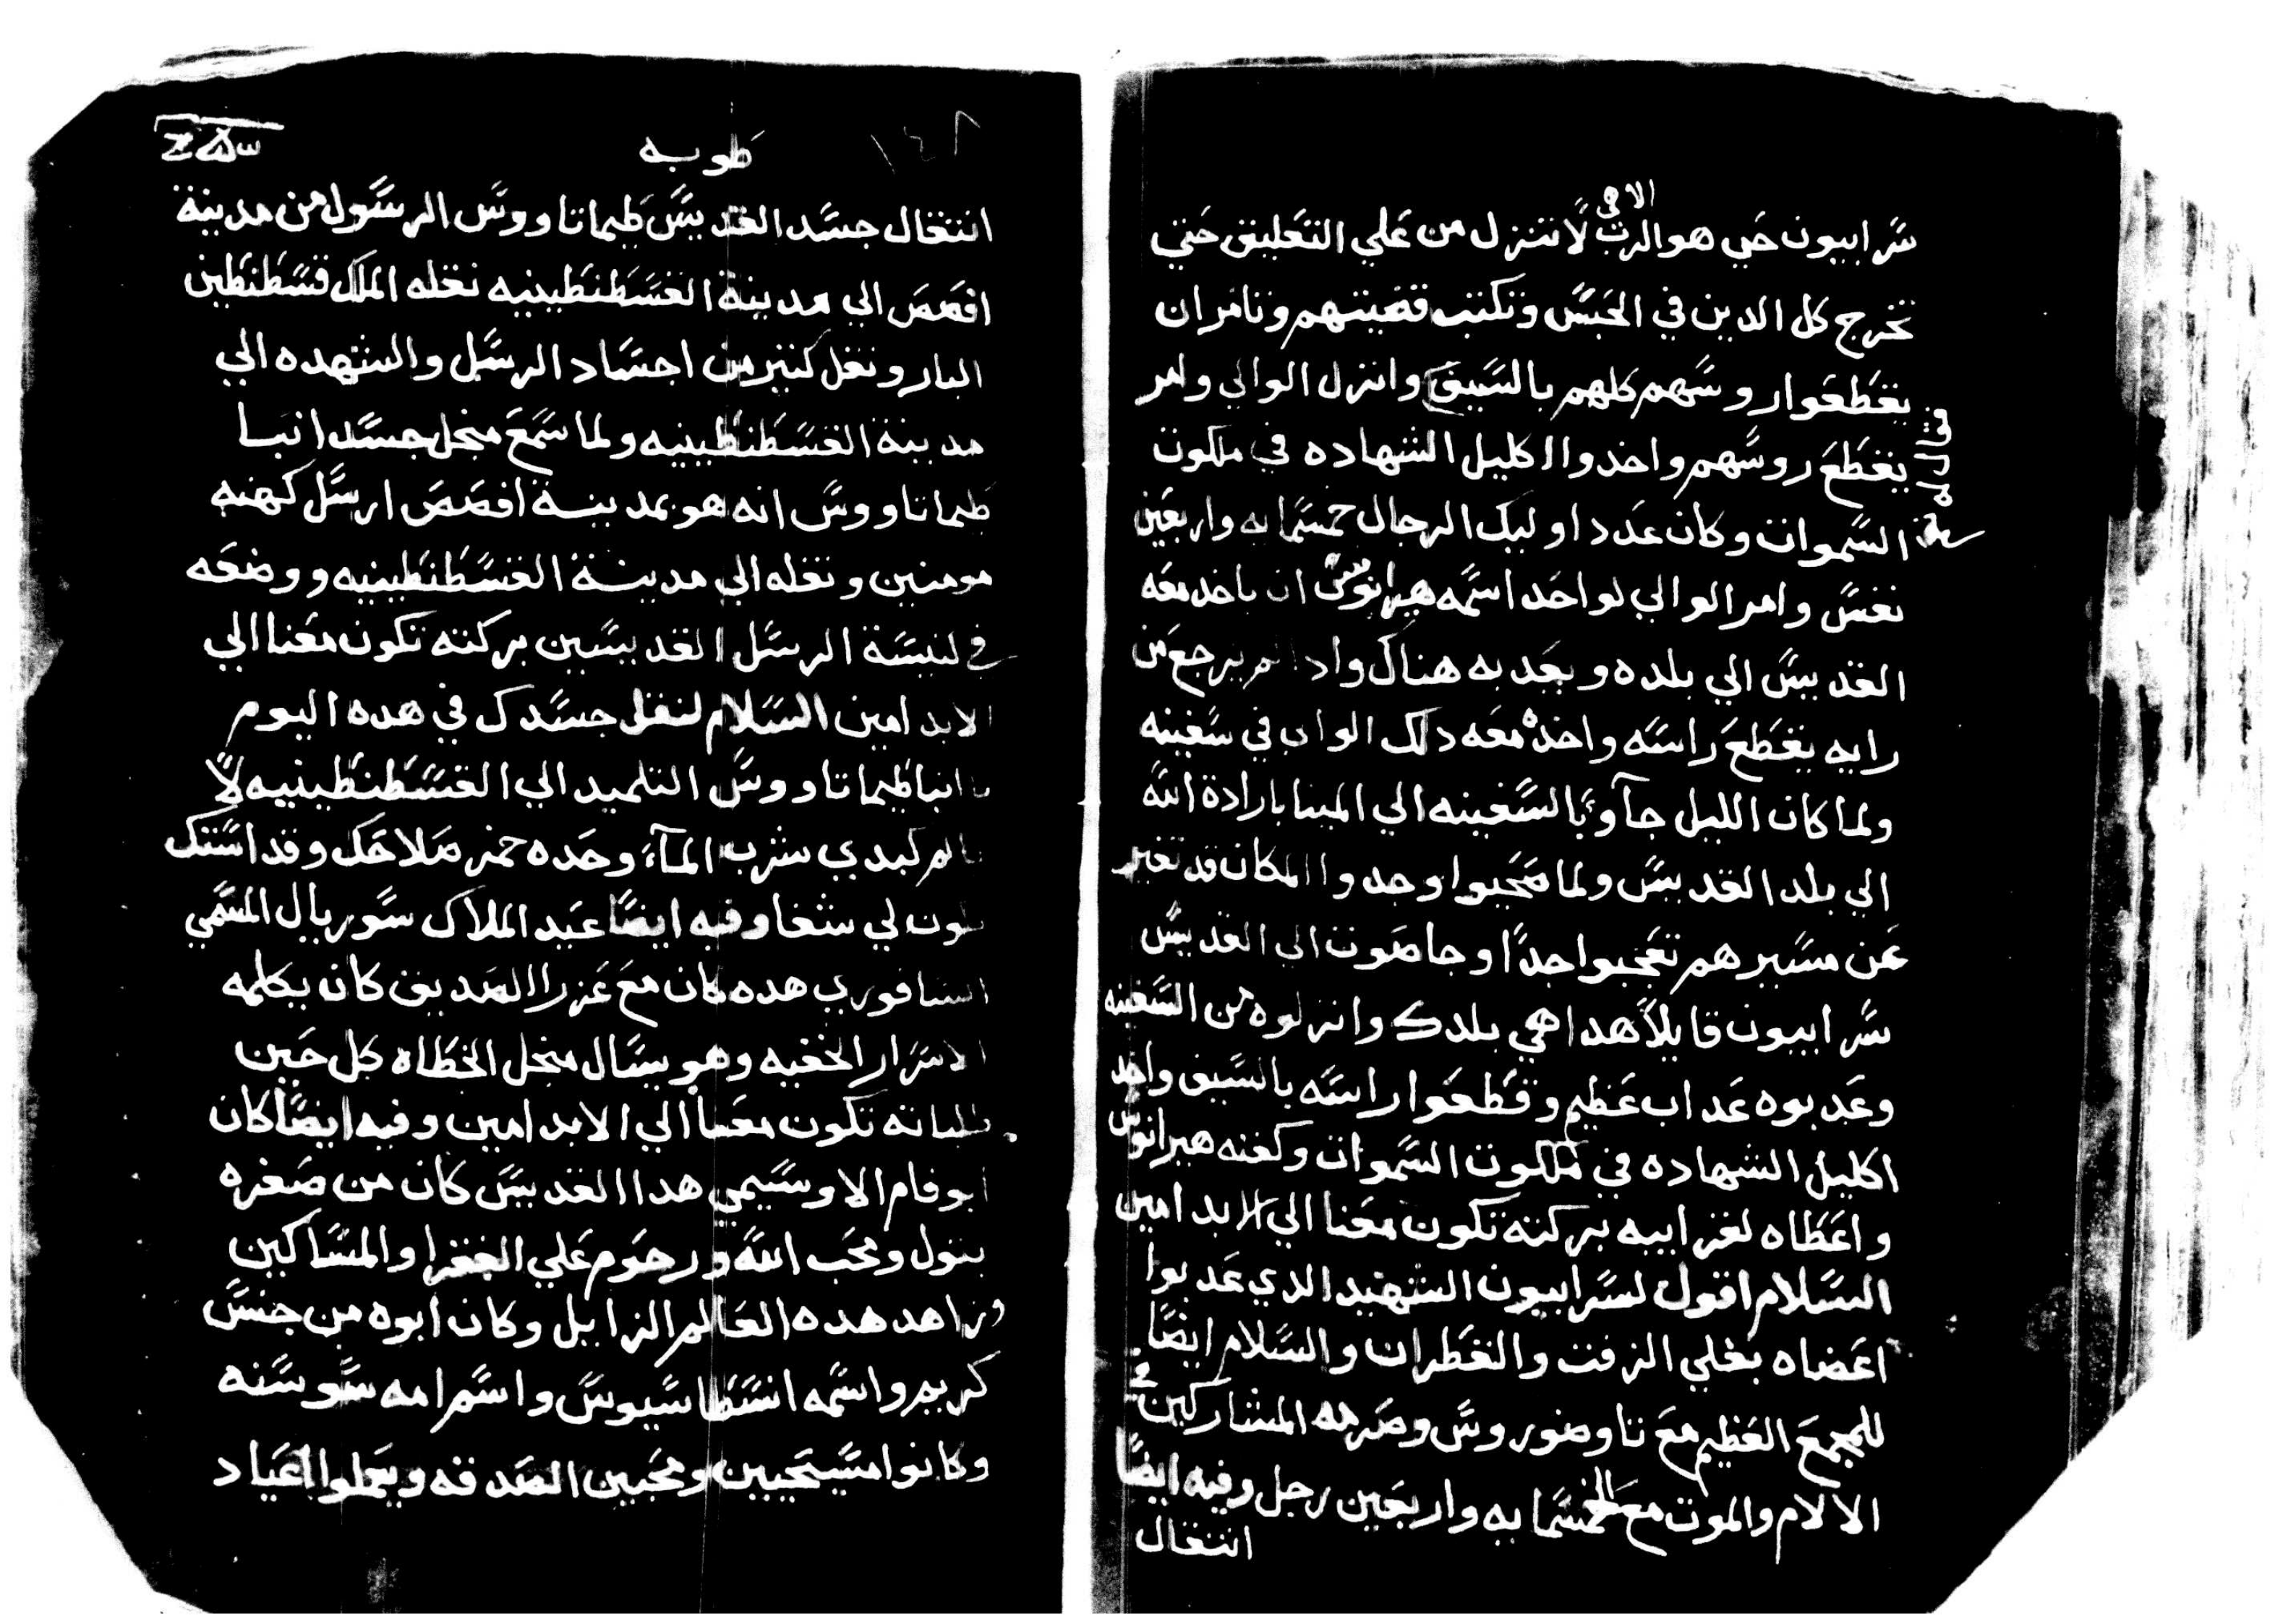 الاهي
سرابيون حي هو الرب لا ننزل من علي التعليق حتي
تخرج كل الدين في الحبس وتكتب قضيتهم وتامر ان
يقطعوا روسهم كلهم بالسيف وانزل الوالي وامر
يقطع روسهم واخدوا اكليل الشهاده في ملكوت
السموات وكان عدد اوليك الرجال خمسمايه واربعين
نفس وامر الوالي لواحد اسمه هيرانوس ان ياخد معه
القديس الي بلده ويعدبه هناك وادا لم يرجع من
رايه يقطع راسه واخده معه دلك الوالي في سفينه
ولما كان الليل جآوا بالسفينه الي المينا بارادة الله
الي بلد القديس ولما صحيوا وجدوا المكان قد تغير
عن مسيرهم تعجبوا جدا وجا صوت الي القديس
سرابيون قايلا هدا هي بلدك وانزلوه من السفينه
وعدبوه عداب عظيم وقطعوا راسه بالسيف واخد
اكليل الشهاده في ملكوت السموات وكفنه هيرانوس
واعطاه لقرابيه بركته تكون معنا الي الابد امين
السلام اقول لسرابيون الشهيد الدي عدبوا
اعضاه بغلي الزفت والقطران والسلام ايضا
للمجمع العظيم مع تاوضوروس وصرمه المشاركين في
الالام والموت مع الخمسمايه واربعين رجل وفيه ايضا
انتقال
١٤٨
طوبه
انتقال جسد القديس طيماتاووس الرسول من مدينة
افصص الي مدينة القسطنطينيه نقله الملك قسطنطين
البار ونقل كتير من اجساد الرسل والشهده الي
مدينة القسطنطينيه ولما سمع منجل جسد انبا
طيماتاووس انه هو بمدينة افصص ارسل كهنه
مومنين ونقله الي مدينة القسطنطينيه ووضعه
في لنيسة الرسل القديسين بركته تكون معنا الي
الابد امين السلام لنقل جسدك في هده اليوم
يا انبا طيماتاووس التلميد الي القسطنطينيه لا
يالم كبدي شرب المآء وحده خمر صلاحك وقد اسنك
يكون لي شفا وفيه ايضا عيد الملاك سوريال المسمي
السافوري هده كان مع عزرا الصديق كان يكلمه
الاسرار الخفيه وهو يسال منجل الخطاه كل حين
طلباته تكون معنا الي الابد امين وفيه ايضا كان
ابوفام الاوسيمي هدا القديس كان من صغره
بتول ومحب الله ورحوم علي الفقرا والمساكين
وزاهد هده العالم الزايل وكان ابوه من جنس
كريم واسمه انسطاسيوس واسم امه سوسنه
وكانوا مسيحيين ومحبين الصدقه ويعملوا اعياد